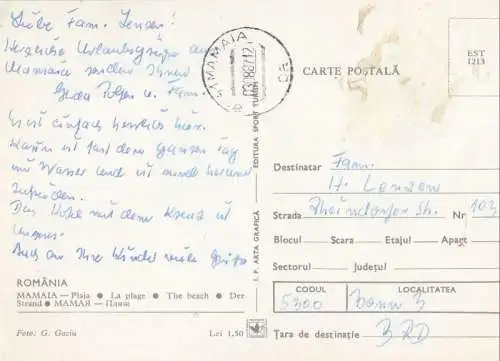 Liebe Fam. Lenzen!
Herzliche Urlaubsgrüße aus
Mamaia senden Ihnen
Fam.
Es ist einfach herrlich hier.
ist fast den ganzen Tag
im Wasser und ist
zufrieden.
Das Hotel mit dem Kreuz ist
unseres.
Auch an Ihre Kinder viele Grüße
ROMÂNIA
MAMAIA — Plaja ● La plage ● The beach ● Der
Strand ● МАМАЯ — Пляж
Foto: G. Gociu
Lei 1,50
I. P. ARTA GRAFICĂ
EDITURA SPORT TURISM
MAMAIA
CARTE POȘTALĂ
EST
1213
Destinatar Fam.
H. Lenzen
Strada Rheindorfer Str. Nr 103
Blocul Scara Etajul Apart
Sectorul Județul
CODUL LOCALITATEA
5300 Bonn 3
Țara de destinație BRD